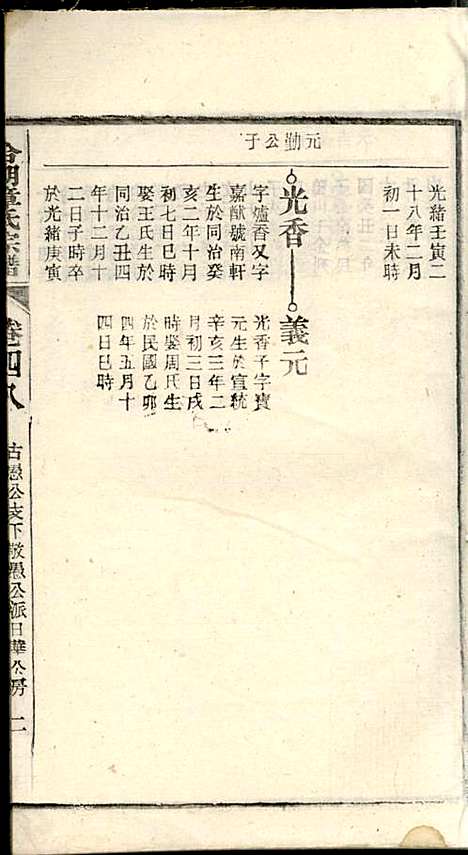 元勤公子
光緒壬寅二
十八年二月
初一日未時
光香——義元
字爐香又字
嘉猷號南軒
生於同治癸
亥二年十月
初七日巳時
娶王氏生於
同治乙丑四
年十二月十
二日子時卒
於光緒庚寅
光香子字寶
元生於宣統
辛亥三年二
月初三日戌
時娶周氏生
於民國乙卯
四年五月十
四日巳時
童氏宗譜
卷四八
古愚公支下敬愚公派日華公房
二